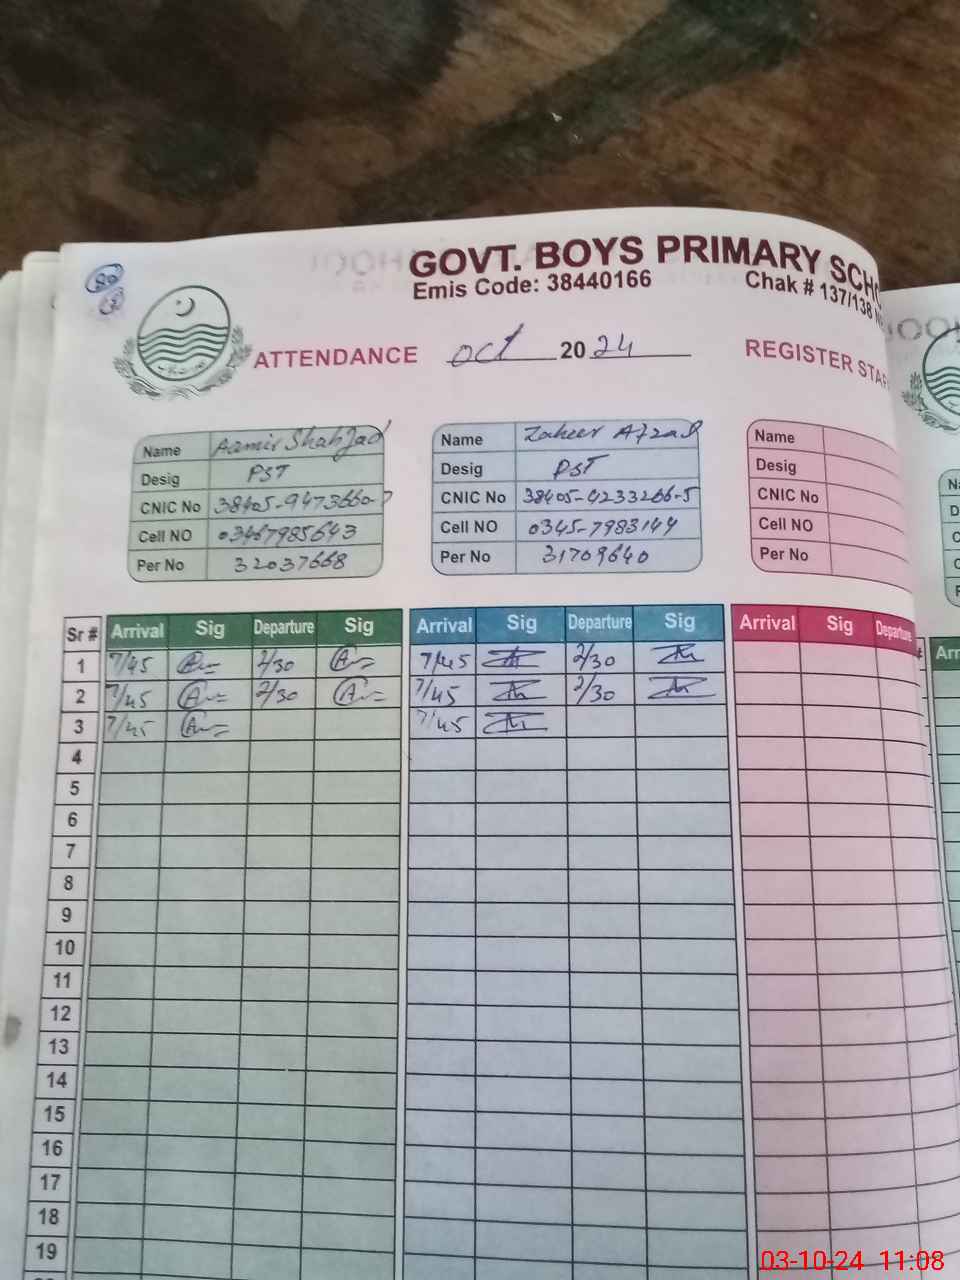 GOVT. BOYS PRIMARY SCHO
Emis Code: 38440166 Chak # 137/138 N
ATTENDANCE oct 2024 REGISTER STAF
Name Aamir Shahzad
Desig PST
CNIC No 38405-9473660-7
Cell NO 03467985643
Per No 32037668
Name Zaheer Afzal
Desig PST
CNIC No 38405-4233266-5
Cell NO 0345-7983144
Per No 31709640
Name
Desig
CNIC No
Cell NO
Per No
Sr # Arrival Sig Departure Sig Arrival Sig Departure Sig Arrival Sig Departure
1 7/45 2/30 7/45 2/30
2 7/45 2/30 7/45 2/30
3 7/45 7/45
4
5
6
7
8
9
10
11
12
13
14
15
16
17
18
19
03-10-24 11:08